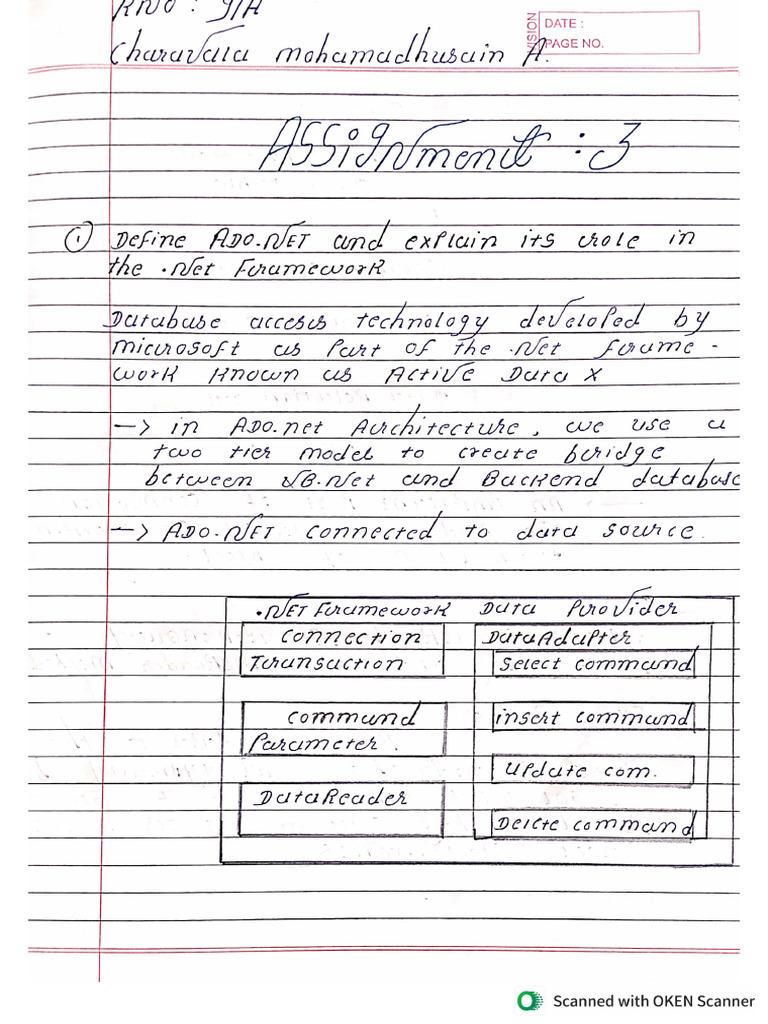 RNO : 91A
Charavala mohamadhusain A.
DATE :
PAGE NO.
Assignment : 3
① Define ADO.NET and explain its role in
the .Net Framework
Database access technology developed by
microsoft as Part of the .Net frame-
work known as Active Data X
→ in ADO.net Architecture, we use a
two tier model to create bridge
between VB.Net and Backend database
→ ADO.NET connected to data source.
.NET Framework Data Provider
Connection
Transaction
Command
Parameter.
DataReader
DataAdapter
Select command
insert command
Update com.
Delete command
Scanned with OKEN Scanner